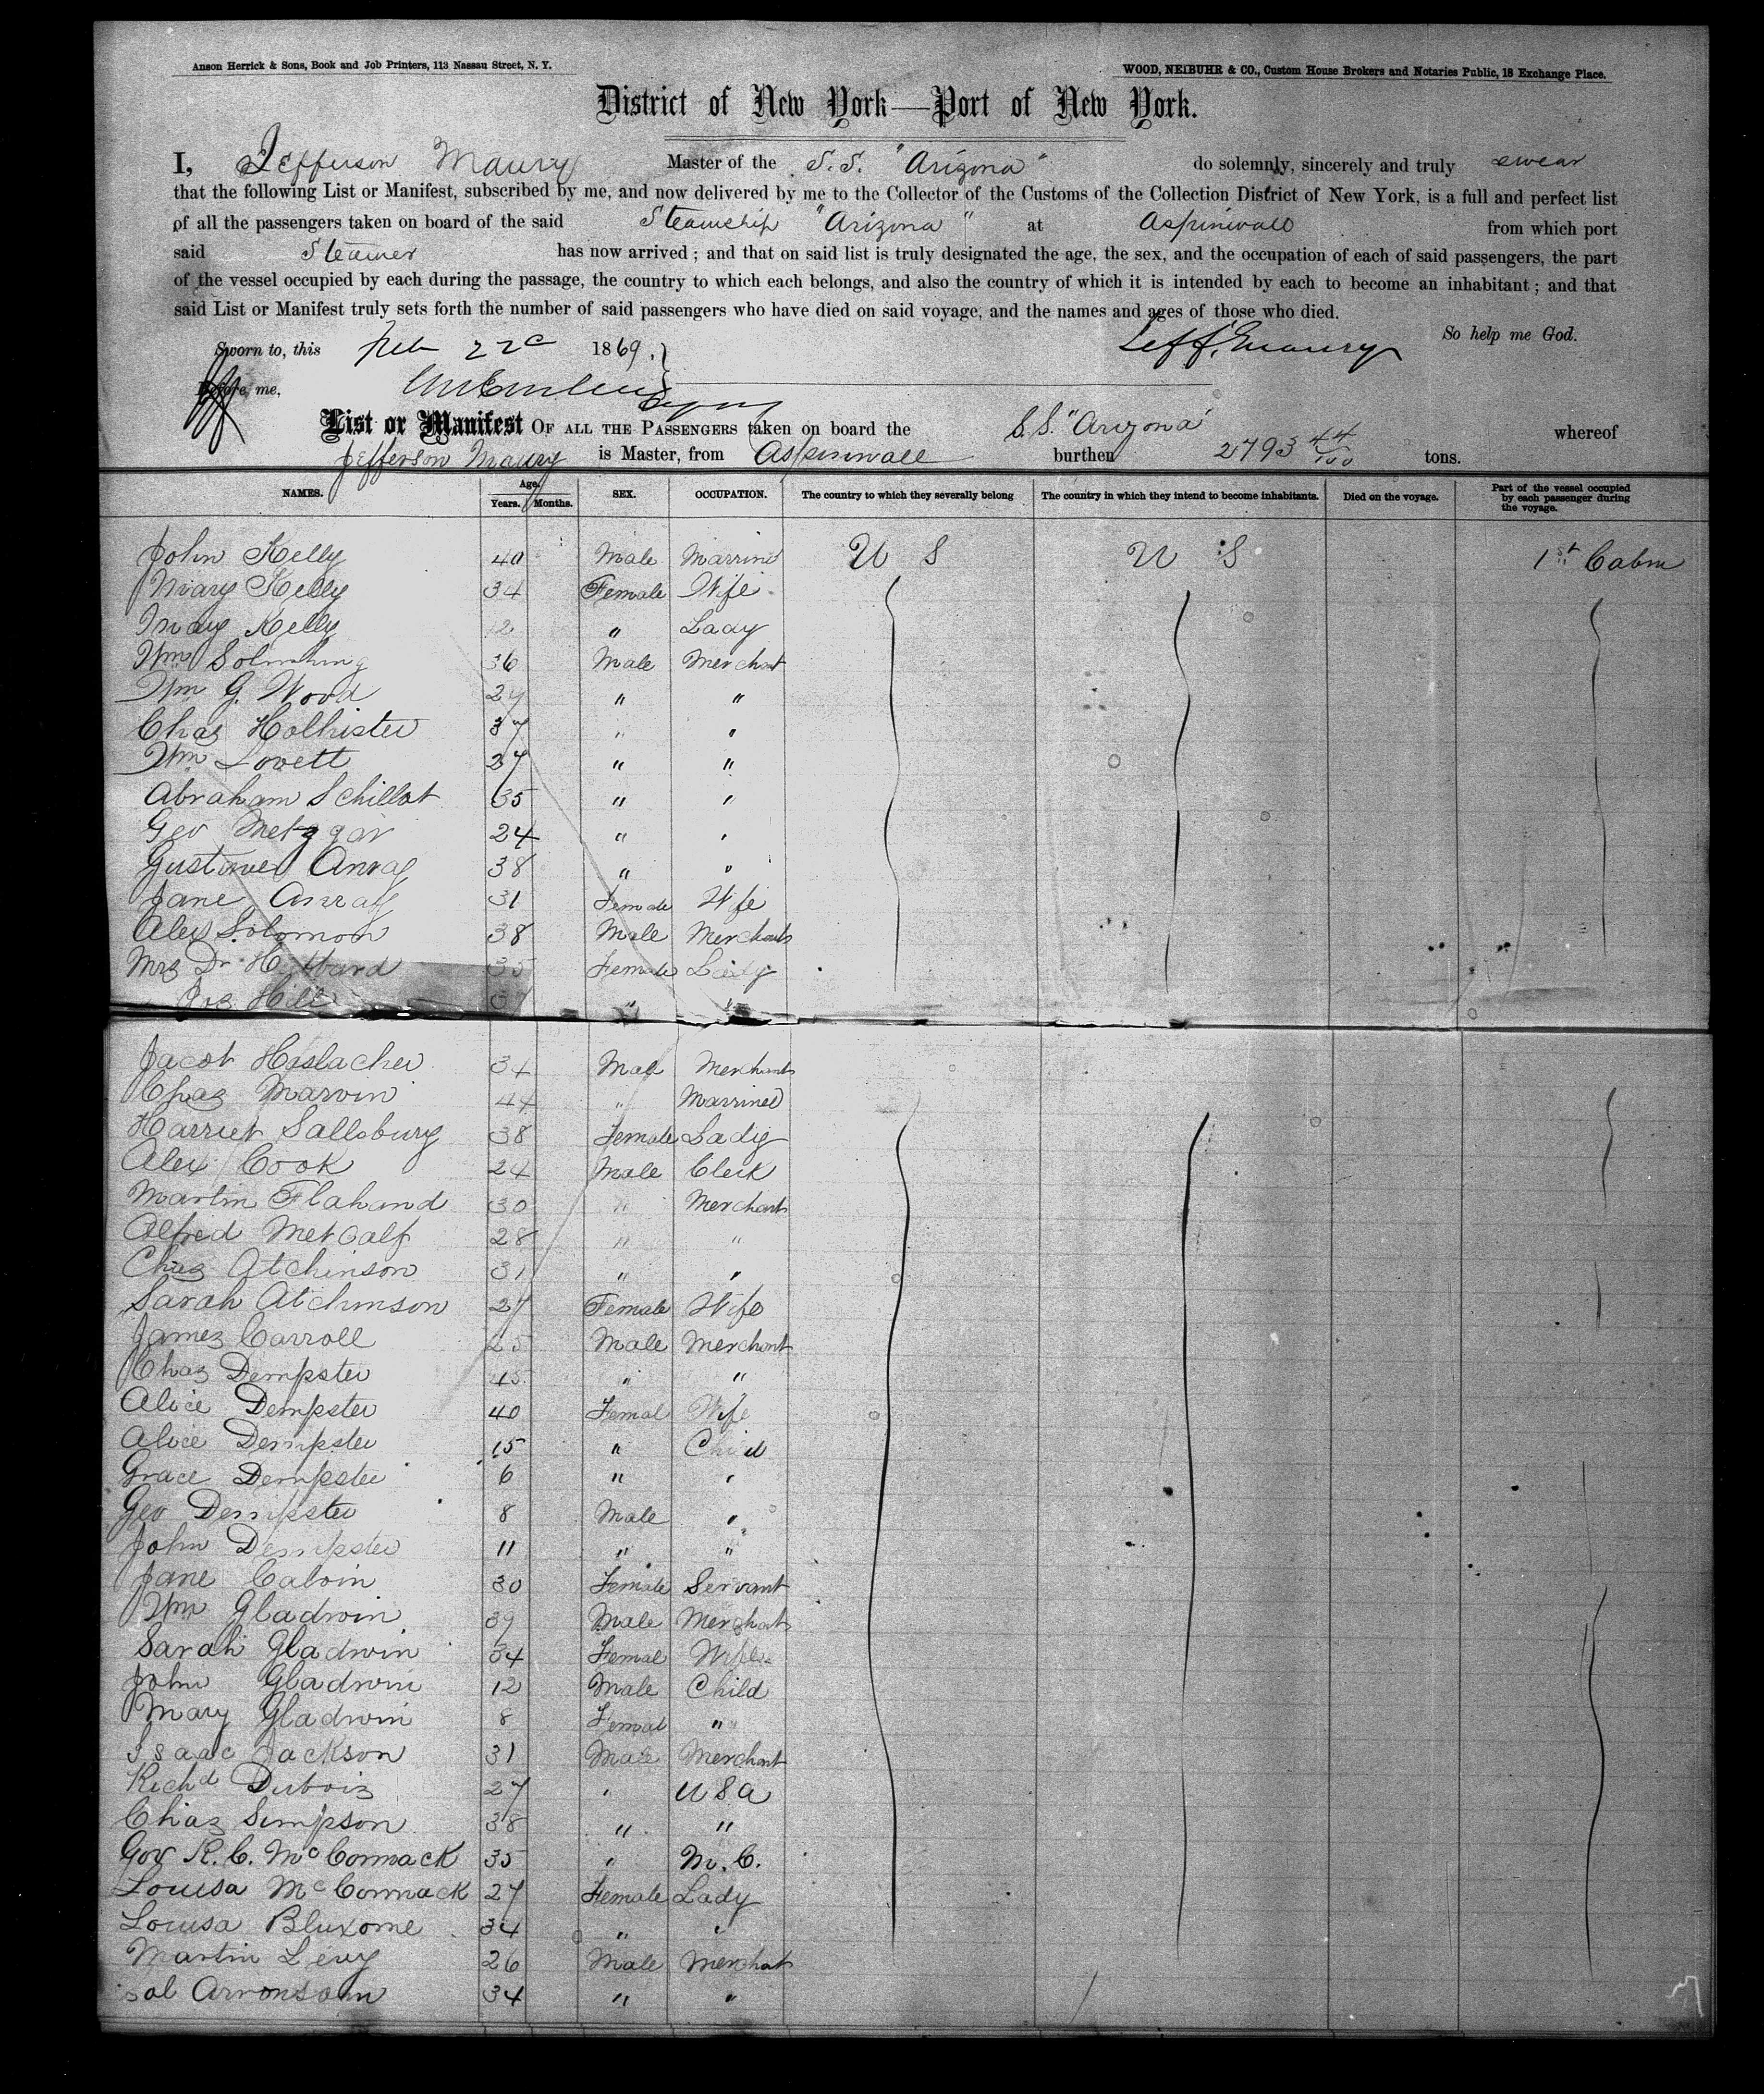 Anson Herrick & Sons, Book and Job Printers, 113 Nassau Street, N. Y.
WOOD, NEIBUHR & CO., Custom House Brokers and Notaries Public, 18 Exchange Place.
District of New York—Port of New York.
I, Jefferson Maury Master of the S.S. "Arizona" do solemnly, sincerely and truly swear
that the following List or Manifest, subscribed by me, and now delivered by me to the Collector of the Customs of the Collection District of New York, is a full and perfect list
of all the passengers taken on board of the said Steamship "Arizona" at Aspinwall from which port
said Steamer has now arrived ; and that on said list is truly designated the age, the sex, and the occupation of each of said passengers, the part
of the vessel occupied by each during the passage, the country to which each belongs, and also the country of which it is intended by each to become an inhabitant ; and that
said List or Manifest truly sets forth the number of said passengers who have died on said voyage, and the names and ages of those who died.
So help me God.
Sworn to, this Feb 22d 1869. Jeff. Maury
Before me,
List or Manifest OF ALL THE PASSENGERS taken on board the S.S. "Arizona" whereof
Jefferson Maury is Master, from Aspinwall burthen 2793 44/100 tons.
NAMES. Age. Years. Months. SEX. OCCUPATION. The country to which they severally belong The country in which they intend to become inhabitants. Died on the voyage. Part of the vessel occupied by each passenger during the voyage.
John Kelly 40 Male Marrined U S U S 1st Cabin
Mary Kelly 34 Female Wife
Mary Kelly 12 " Lady
Wm 36 Male Merchant
Wm G. Wood 27 " "
Chas Hollister 37 " "
Wm Lovett 27 " "
Abraham Schillot 35 " "
Geo Metzgar 24 " "
Gustave 38 " "
Jane 31 Female Wife
Alex Solomon 38 Male Merchants
Mrs Dr Hubbard 35 Female Lady
Jos Hill " "
Jacob Haslacher 34 Male Merchants
Chas Marvin 44 " Marrined
Harriet Sallsbury 38 Female Lady
Alex Cook 24 Male Clerk
Martin Flahand 30 " Merchants
Alfred Metcalf 28 " "
Chas Atchinson 31 " "
Sarah Atchinson 27 Female Wife
James Carroll 25 Male Merchant
Chas Dempster 45 " "
Alice Dempster 40 Femal Wife
Alice Dempster 15 " Child
Grace Dempster 6 " "
Geo Dempster 8 Male "
John Dempster 11 " "
Jane Calvin 30 Female Servant
Wm Gladwin 39 Male Merchants
Sarah Gladwin 34 Femal Wife
John Gladwin 12 Male Child
Mary Gladwin 8 Femal "
Isaac Jackson 31 Male Merchant
Richd Dubois 27 " U S A
Chas Simpson 38 " "
Gov R. C. McCormack 35 " M. C.
Louisa McCormack 27 Female Lady
Louisa Bluxome 34 " "
Martin Levy 26 Male Merchat
Sol Arronsoam 34 " "